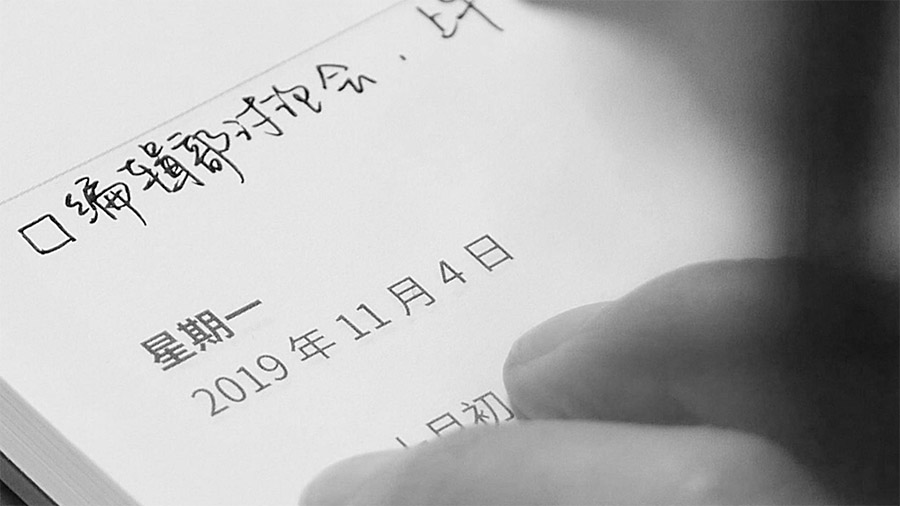 □编辑部讨论会．上午
星期一
2019年11月4日
十月初